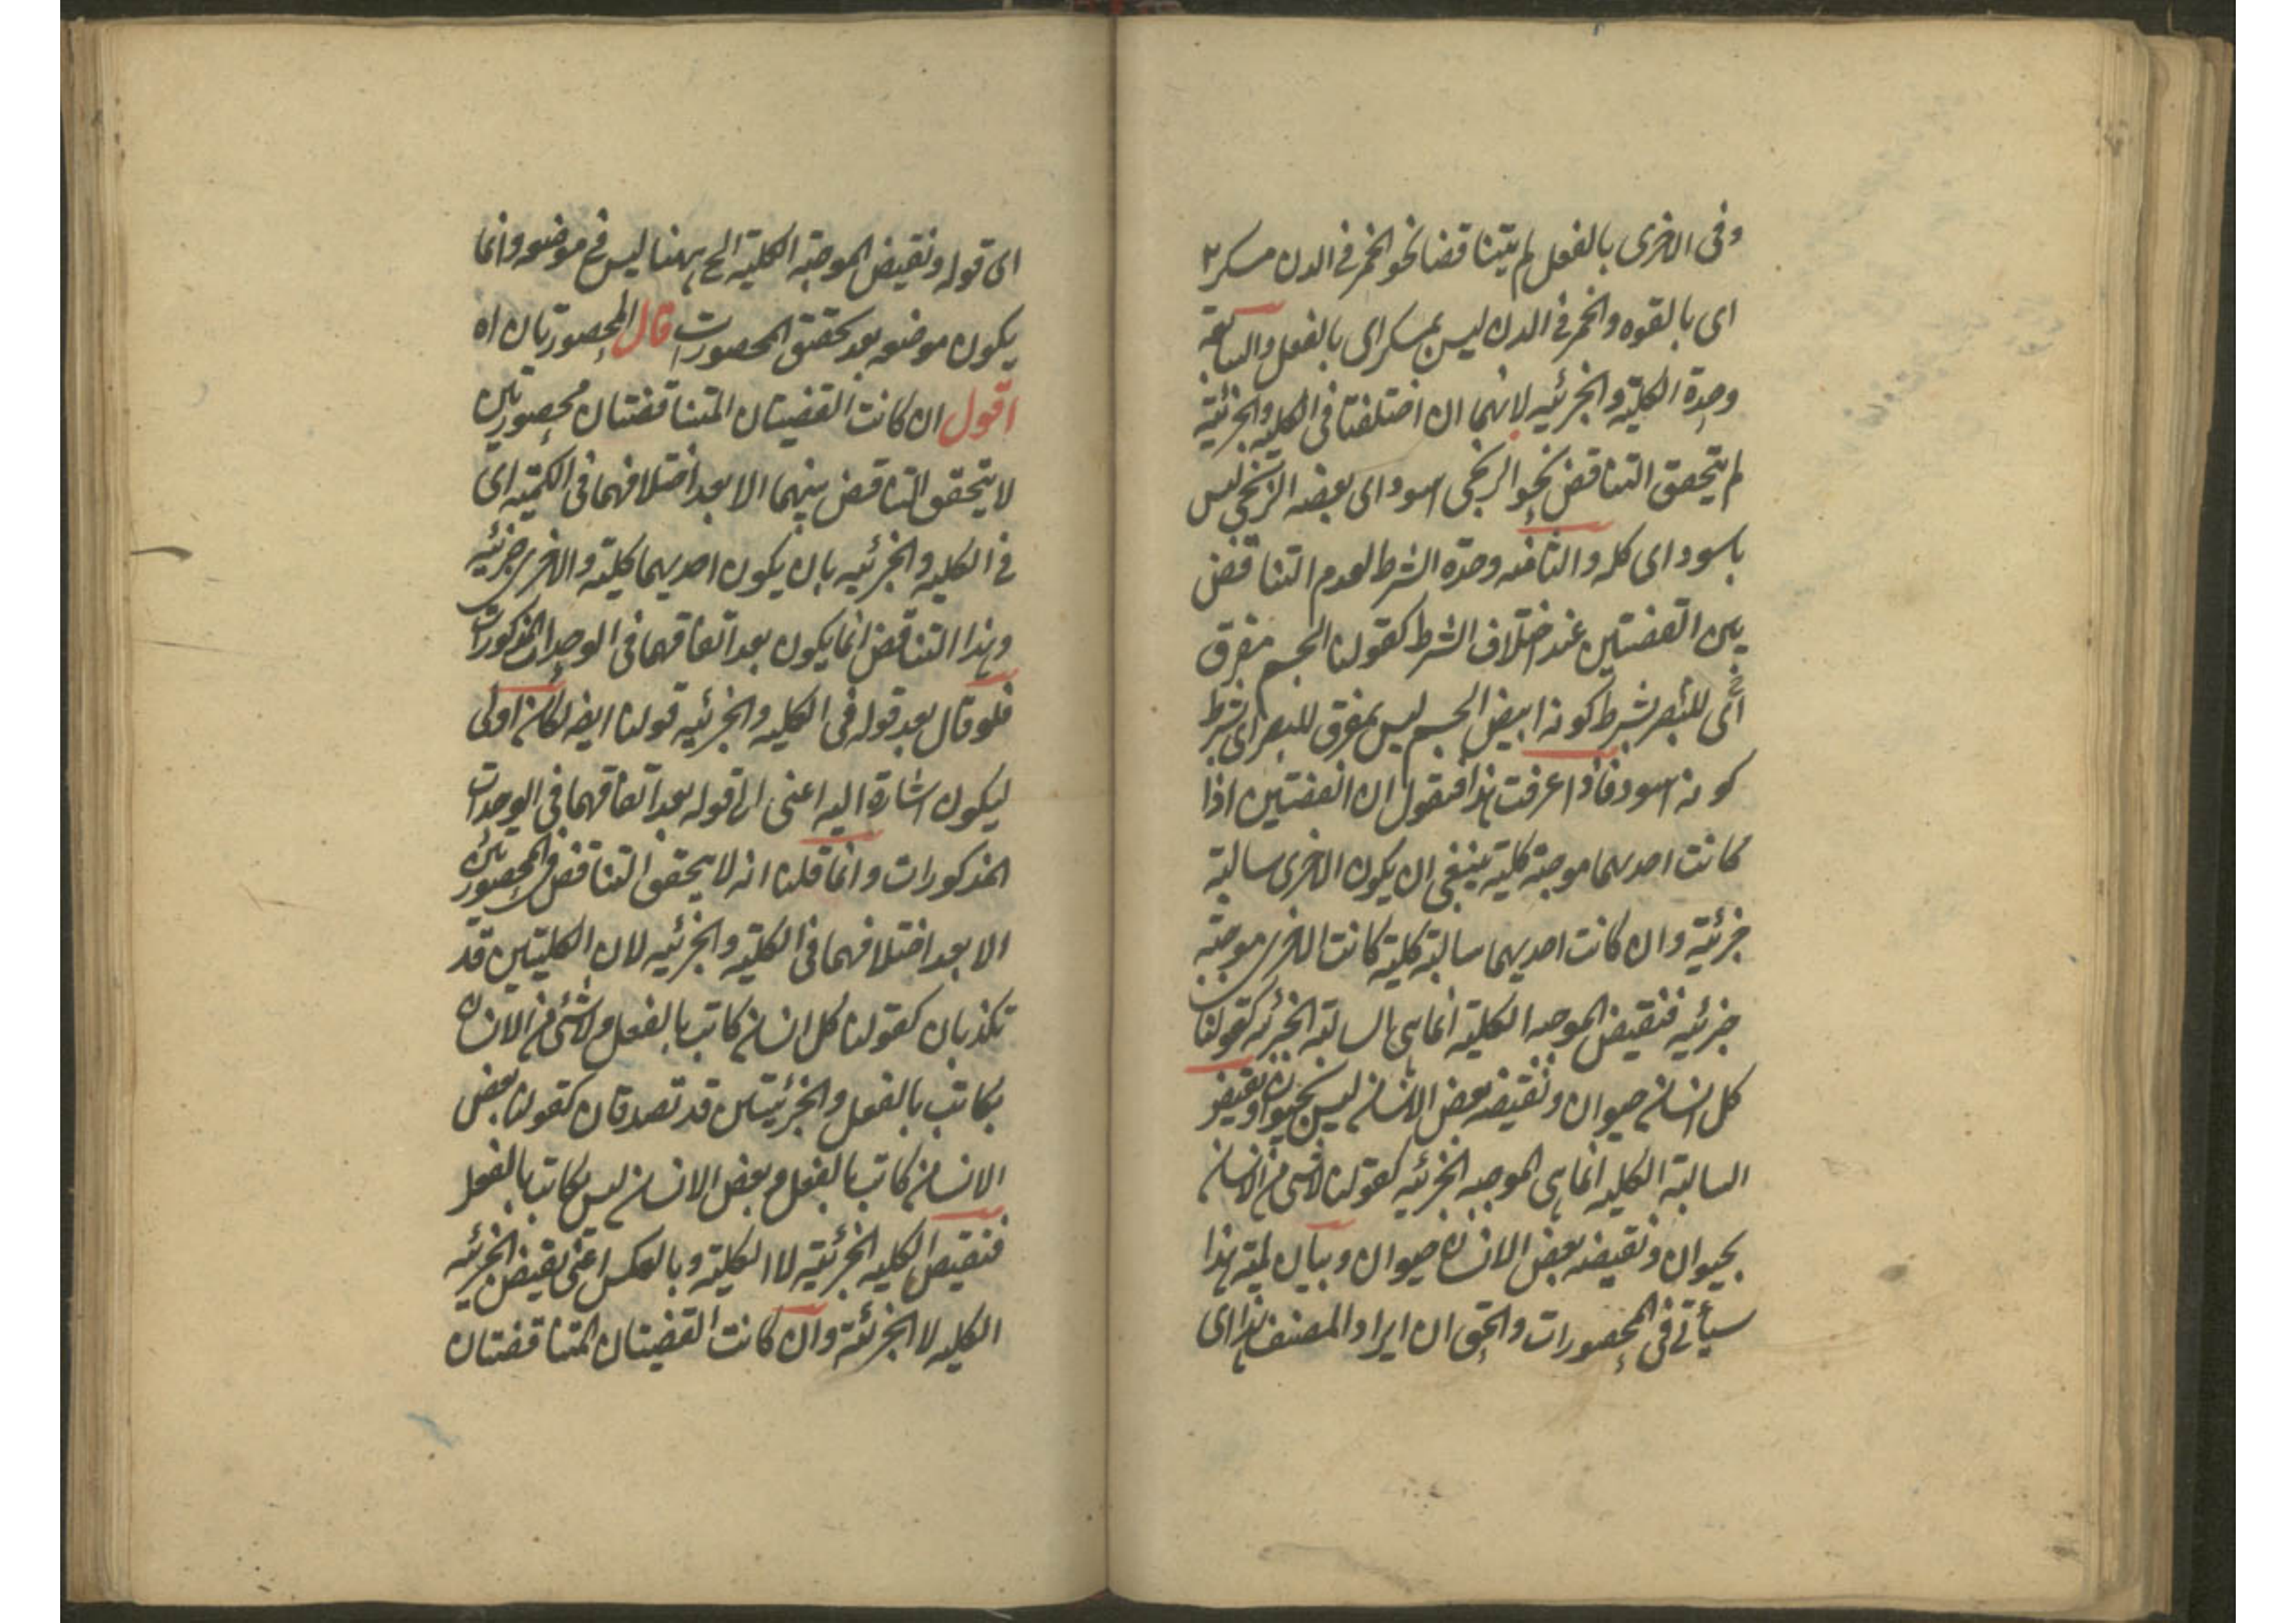 وفى الاخرى بالفعل لم يتناقضا نحو الخمر فى الدن مسكر
اى بالقوه والخمر فى الدن ليس بمسكر اى بالفعل والسابعة
وحدة الكلية والجزئيه لانهما ان اختلفتا فى الكليه والجزئية
لم يتحقق التناقض نحو الزنجى اسود اى بعضه الزنجى ليس
باسود اى كله والثامنه وحدة الشرط لعدم التناقض
بين القضيتين عند اختلاف الشرط كقولنا الجسم مفرق
للبصر بشرط كونه ابيض الجسم ليس بمفرق للبصر اى بشرط
كونه اسود فاذا عرفت هذا فنقول ان القضيتين اذا
كانت احديهما موجبة كلية ينبغى ان يكون الاخرى سالبة
جزئية وان كانت احديهما سالبة كلية كانت الاخرى موجبة
جزئيه فنقيض الموجبه الكلية انما هى السالبة الجزئيه كقولنا
كل انسان حيوان ونقيضه بعض الانسان ليس بحيوان ونقيض
السالبة الكليه انما هى الموجبه الجزئيه كقولنا لا شى من الانسان
بحيوان ونقيضه بعض الانسان حيوان وبيان لمية هذا
سيأتى فى المحصورات والحق ان ايراد المصنف هذا اى
اى قوله ونقيض الموجبة الكلية الخ ههنا ليس فى موضعه وانما
يكون موضعه بعد تحقق المحصورات قال المحصورتان اه
اقول ان كانت القضيتان المتناقضتان محصورتين
لا يتحقق التناقض بينهما الا بعد اختلافهما فى الكمية اى
فى الكليه والجزئيه بان يكون احديهما كلية والاخرى جزئيه
وهذا التناقض انما يكون بعد اتفاقهما فى الوحدات المذكورات
فلو قال بعد قوله فى الكليه والجزئيه قولنا ايضه لكان اولى
ليكون اشارة اليه اعنى الى قوله بعد اتفاقهما فى الوحدات
المذكورات وانما قلنا انه لا يتحقق التناقض فى المحصورتين
الا بعد اختلافهما فى الكلية والجزئيه لان الكليتين قد
تكذبان كقولنا كل انسان كاتب بالفعل ولا شئ من الانسان
بكاتب بالفعل والجزئيتين قد تصدقان كقولنا بعض
الانسان كاتب بالفعل وبعض الانسان ليس بكاتب بالفعل
فنقيض الكليه الجزئية لا الكلية وبالعكس اعنى نقيض الجزئيه
الكليه لا الجزئية وان كانت القضيتان المتناقضتان